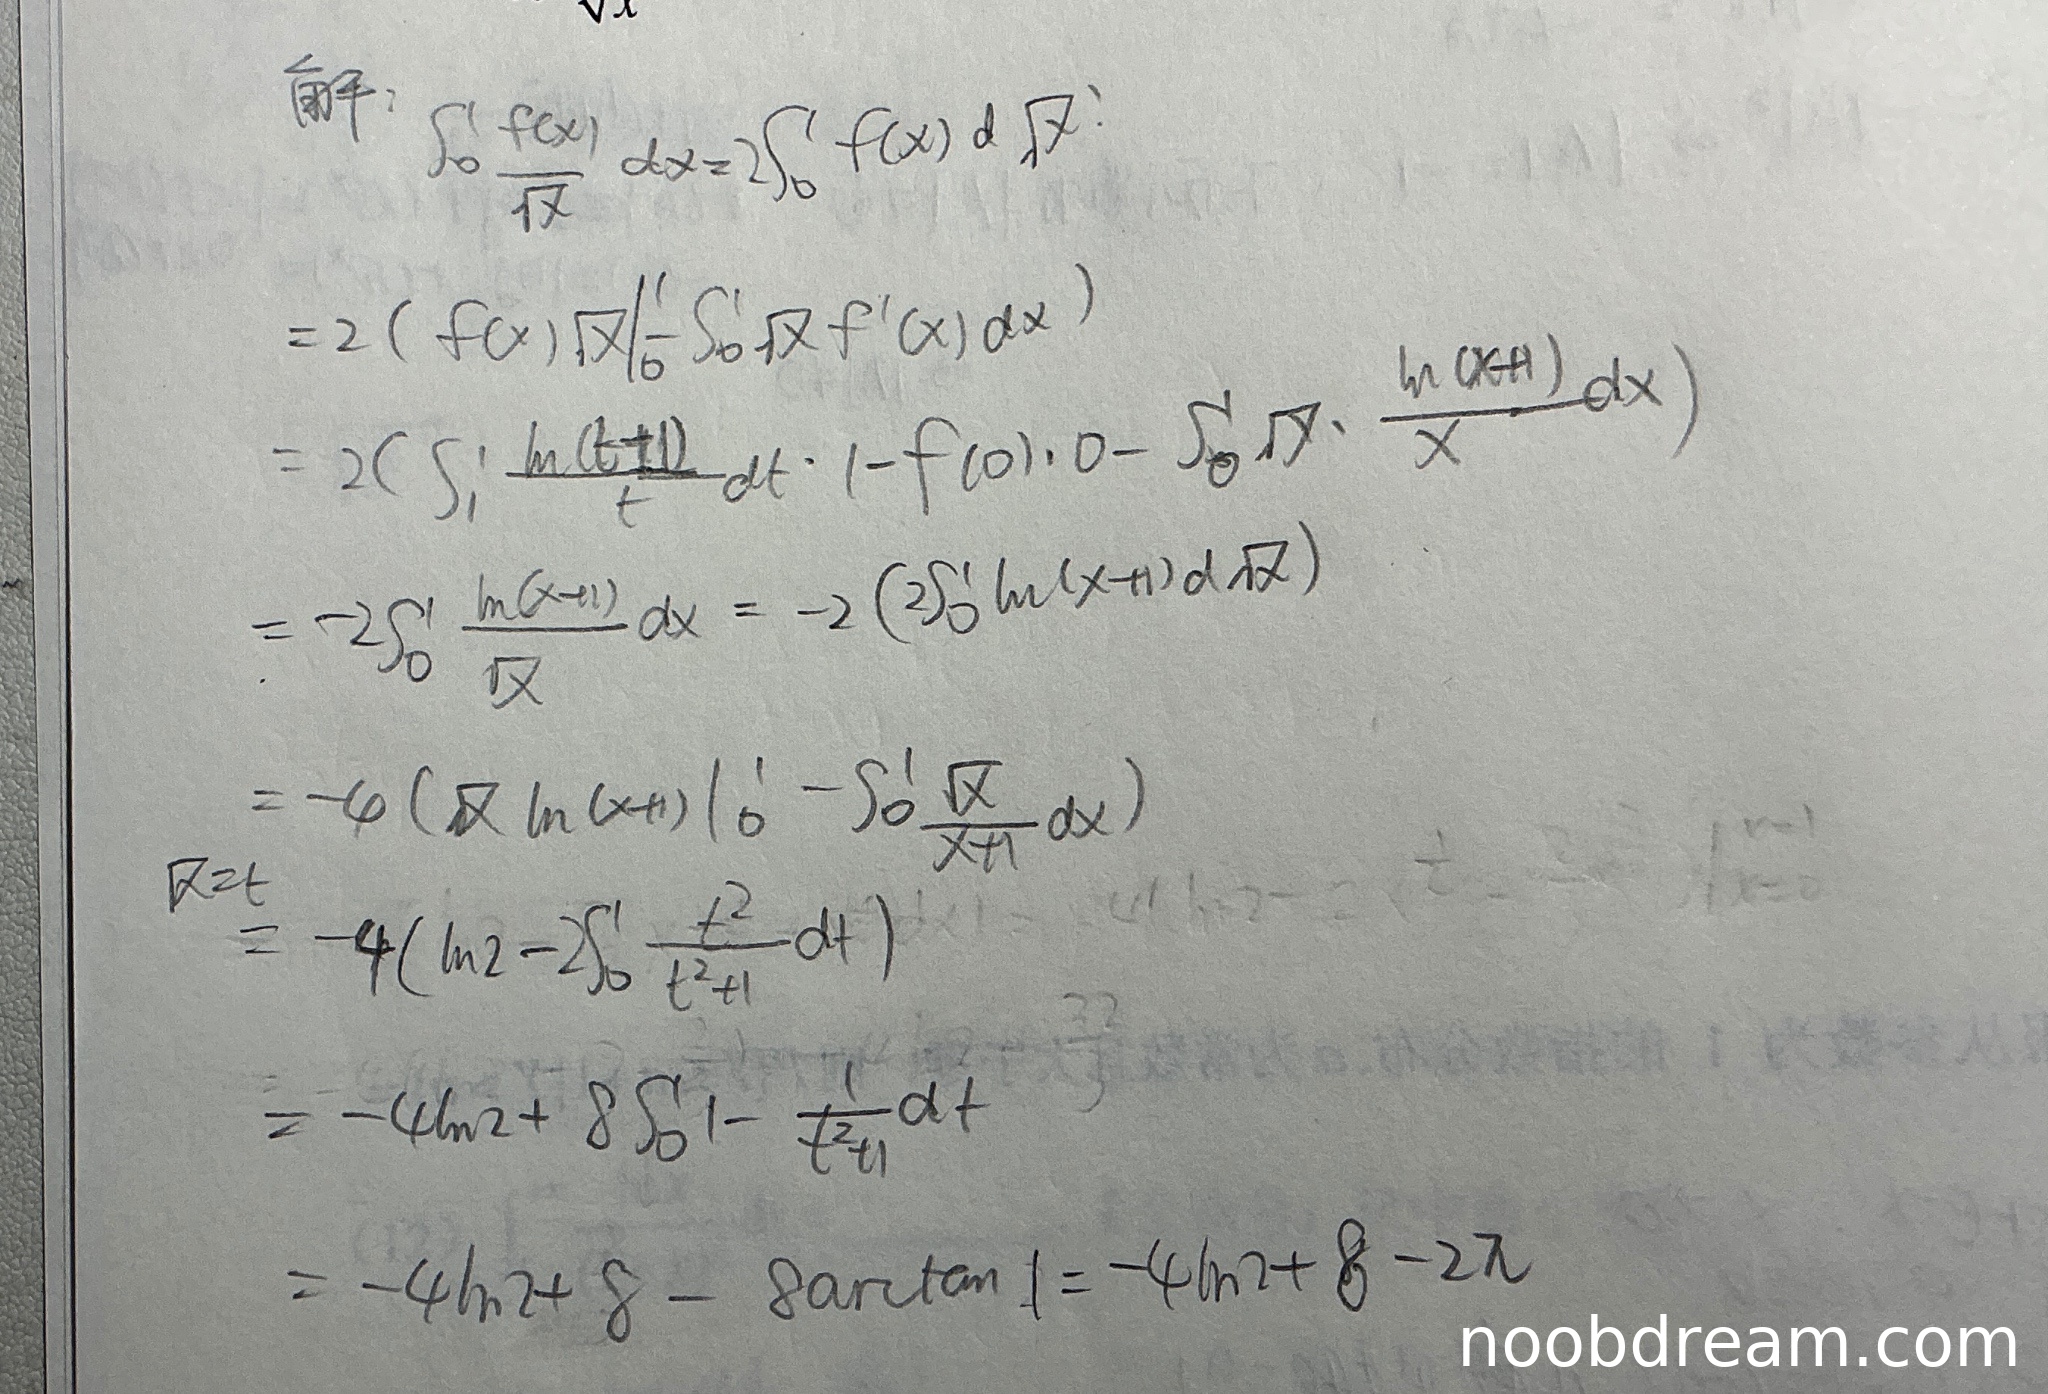 √x
解: ∫₀¹ f(x)/√x dx = 2∫₀¹ f(x) d√x
= 2( f(x)√x |₀¹ - ∫₀¹ √x f'(x) dx )
= 2( ∫₁¹ ln(t+1)/t dt · 1 - f(0)·0 - ∫₀¹ √x · ln(x+1)/x dx )
= -2∫₀¹ ln(x+1)/√x dx = -2( 2∫₀¹ ln(x+1) d√x )
= -4( √x ln(x+1) |₀¹ - ∫₀¹ √x/(x+1) dx )
√x=t
= -4( ln2 - 2∫₀¹ t²/(t²+1) dt )
= -4ln2 + 8∫₀¹ 1 - 1/(t²+1) dt
= -4ln2 + 8 - 8arctan 1 = -4ln2 + 8 - 2π
noobdream.com